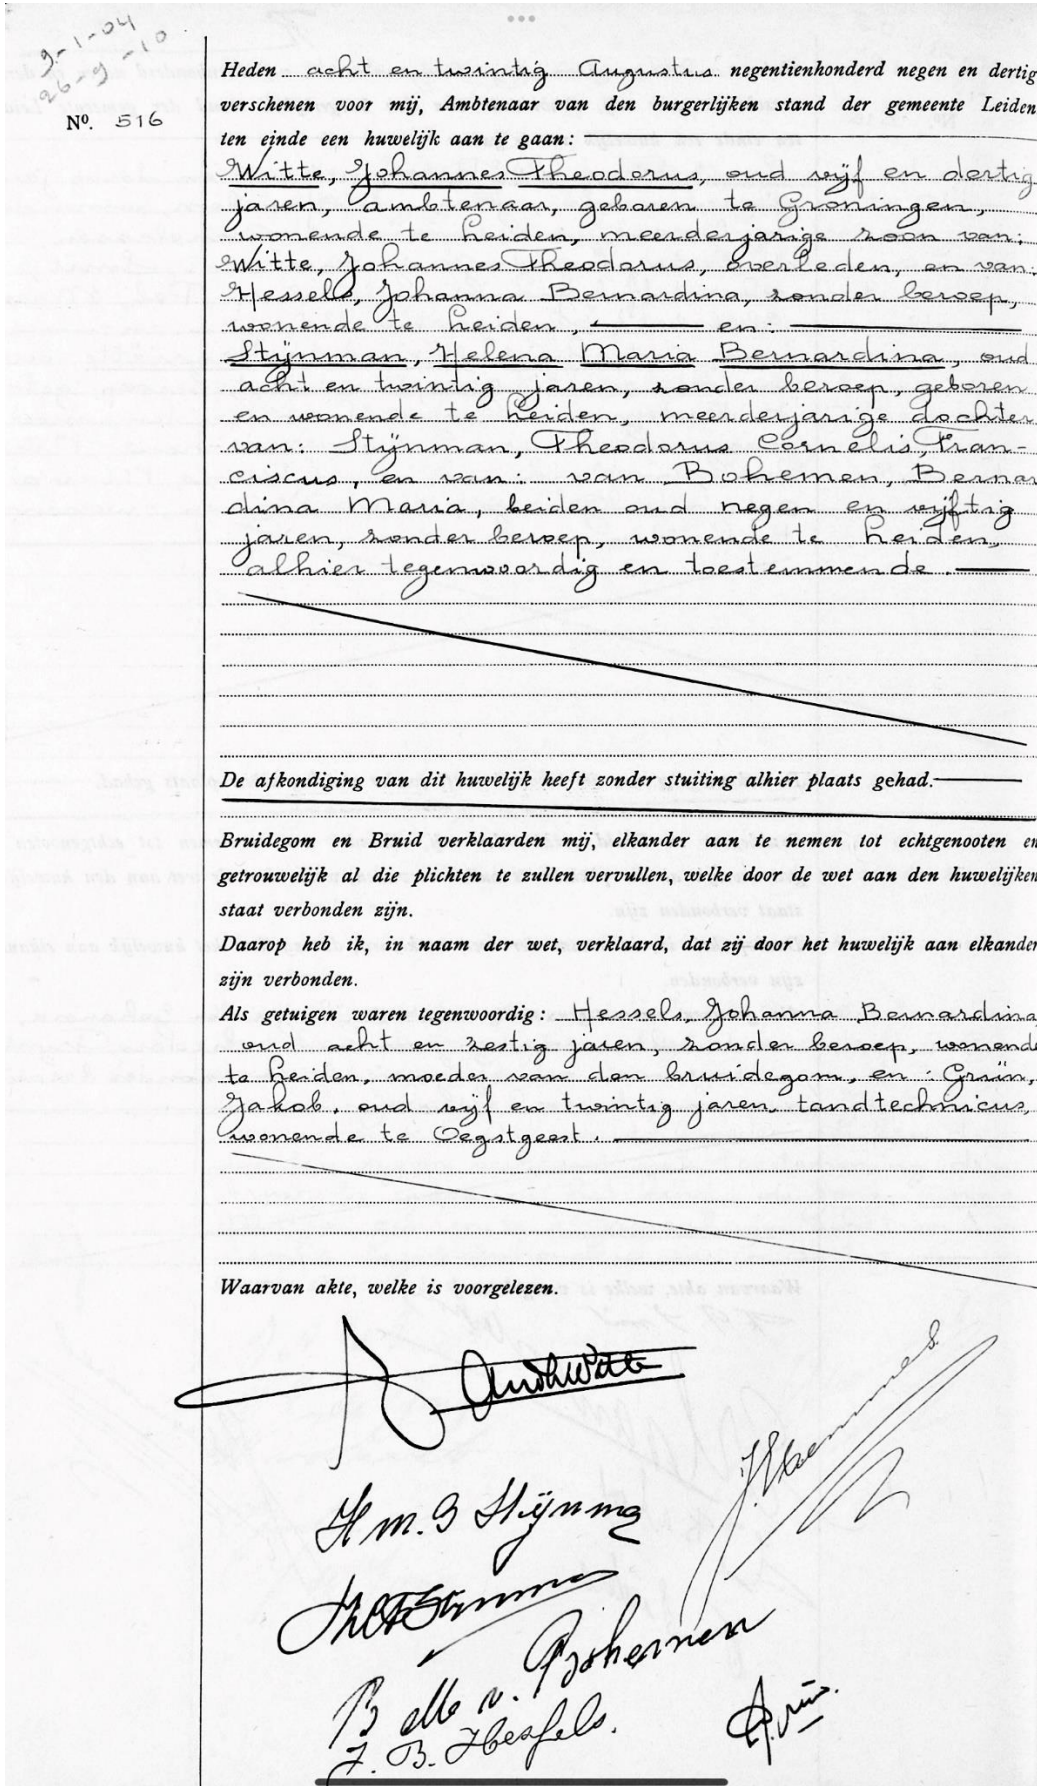 9-1-04
26-9-10.
Nº. 516
Heden acht en twintig Augustus negentienhonderd negen en dertig
verschenen voor mij, Ambtenaar van den burgerlijken stand der gemeente Leiden
ten einde een huwelijk aan te gaan:
Witte, Johannes Theodorus, oud vijf en dertig
jaren, ambtenaar, geboren te Groningen,
wonende te Leiden, meerderjarige zoon van:
Witte, Johannes Theodorus, overleden, en van:
Hessels, Johanna Bernardina, zonder beroep,
wonende te Leiden, en:
Stijnman, Helena Maria Bernardina, oud
acht en twintig jaren, zonder beroep, geboren
en wonende te Leiden, meerderjarige dochter
van: Stijnman, Theodorus Cornelis, Fran-
ciscus, en van: van Bohemen, Bernar
dina Maria, beiden oud negen en vijftig
jaren, zonder beroep, wonende te Leiden,
alhier tegenwoordig en toestemmende.
De afkondiging van dit huwelijk heeft zonder stuiting alhier plaats gehad.
Bruidegom en Bruid verklaarden mij, elkander aan te nemen tot echtgenooten en
getrouwelijk al die plichten te zullen vervullen, welke door de wet aan den huwelijken
staat verbonden zijn.
Daarop heb ik, in naam der wet, verklaard, dat zij door het huwelijk aan elkander
zijn verbonden.
Als getuigen waren tegenwoordig: Hessels, Johanna Bernardina,
oud acht en zestig jaren, zonder beroep, wonende
te Leiden, moeder van den bruidegom, en: Grün,
Jakob, oud vijf en twintig jaren, tandtechnicus,
wonende te Oegstgeest.
Waarvan akte, welke is voorgelezen.
Witte
H M. B Stijnman
B M v. Bohemen
J. B. Hessels.